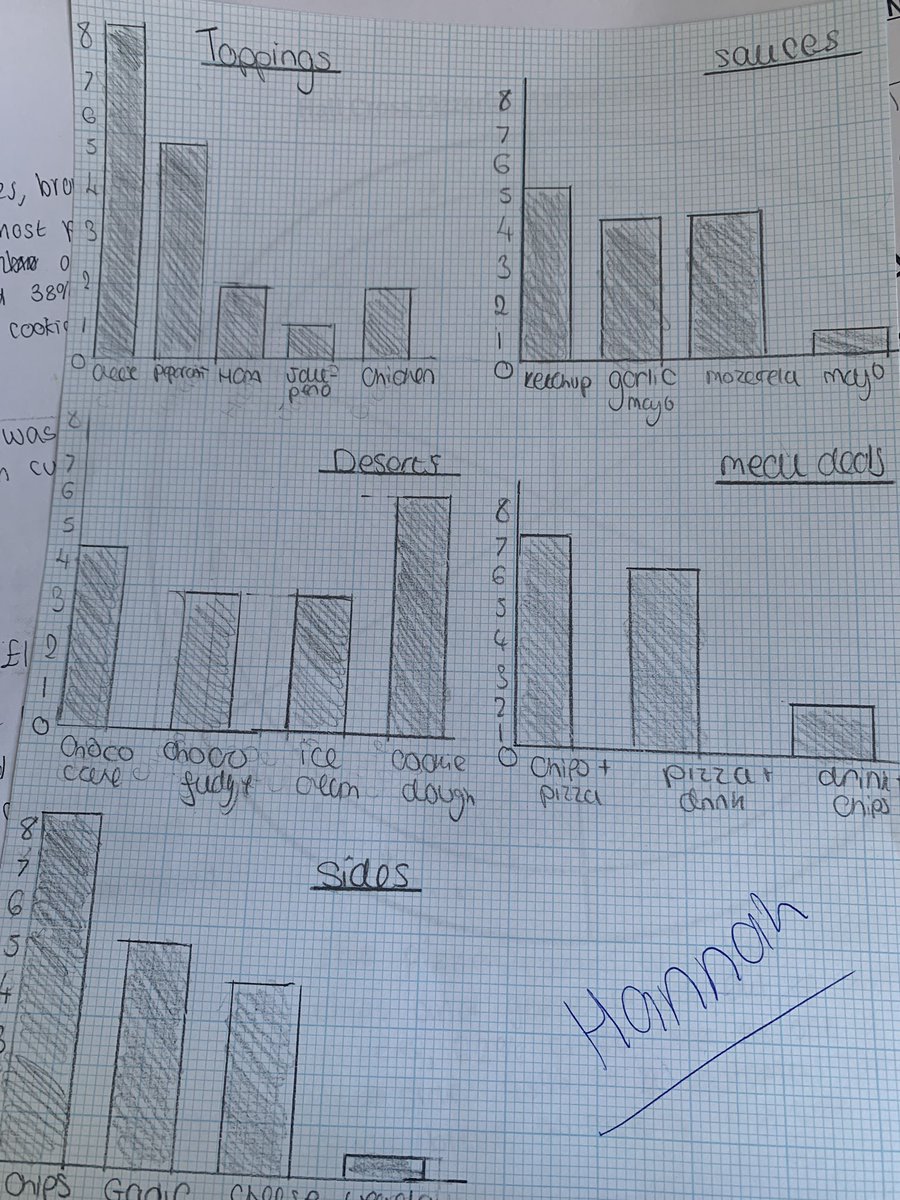 Toppings
8
7
6
5
4
3
2
1
0
Ham
Jala-
peno
Chicken
sauces
8
7
6
5
4
3
2
1
0
ketchup
garlic
mayo
mozerela
mayo
es, bro
most
38%
cookie
was
n cu
£1
Deserts
8
7
6
5
4
3
2
1
0
Choco
cake
Choco
fudge
ice
cream
cookie
dough
meal deals
8
7
6
5
4
3
2
1
0
Chips +
pizza
pizza +
drink
drink +
chips
Sides
8
7
6
5
4
3
Chips
Garlic
Cheese
Hannah